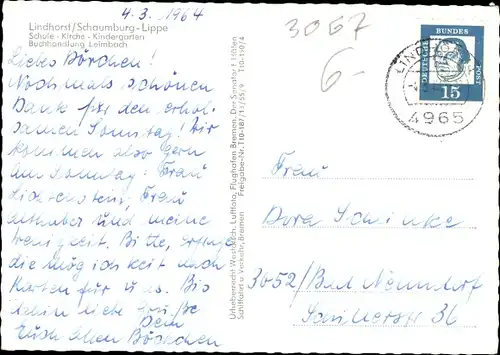 4.3.1964
Lindhorst/Schaumburg-Lippe
Schule - Kirche - Kindergarten
Buchhandlung Leimbach
Liebes Dorchen!
Nochmals schönen
Dank für den erhol-
samen Sonntag! Wir
kommen also gern
am Sonntag: Frau
Lichtenstein, Frau
und meine
Bitte,
die möglichkeit nach
Karten für uns. Bis
dahin liebe Grüße
Dein
Euch allen
Urheberrecht Luftfoto, Flughafen Bremen. Der Senator f. Häfen
Schiffahrt u. Verkehr, Bremen Freigabe-Nr. T10-187/11/55/9 T10-110/4
3067
6-
DEUTSCHE
BUNDES
POST
15
4965
Frau
Dora Schinke
3052/Bad Nenndorf
36